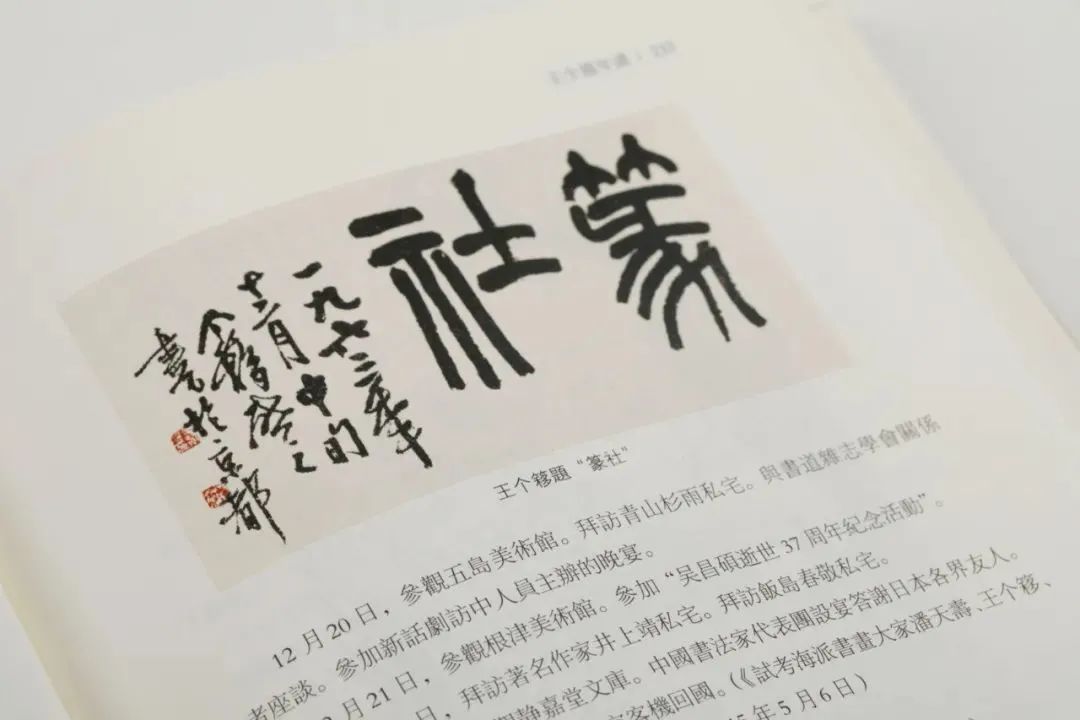 篆社
一九六三年
十二月中旬
个簃
於京都
王个簃題“篆社”
12 月 20 日，參觀五島美術館。拜訪青山杉雨私宅。與書道雜志學會關係
者座談。參加新話劇訪中人員主辦的晚宴。
月 21 日，參觀根津美術館。參加“吴昌碩逝世 37 周年紀念活動”。
日，拜訪著名作家井上靖私宅。拜訪飯島春敬私宅。
静嘉堂文庫。中國書法家代表團設宴答謝日本各界友人。
客機回國。（《試考海派書畫大家潘天壽、王个簃、
年 5 月 6 日）